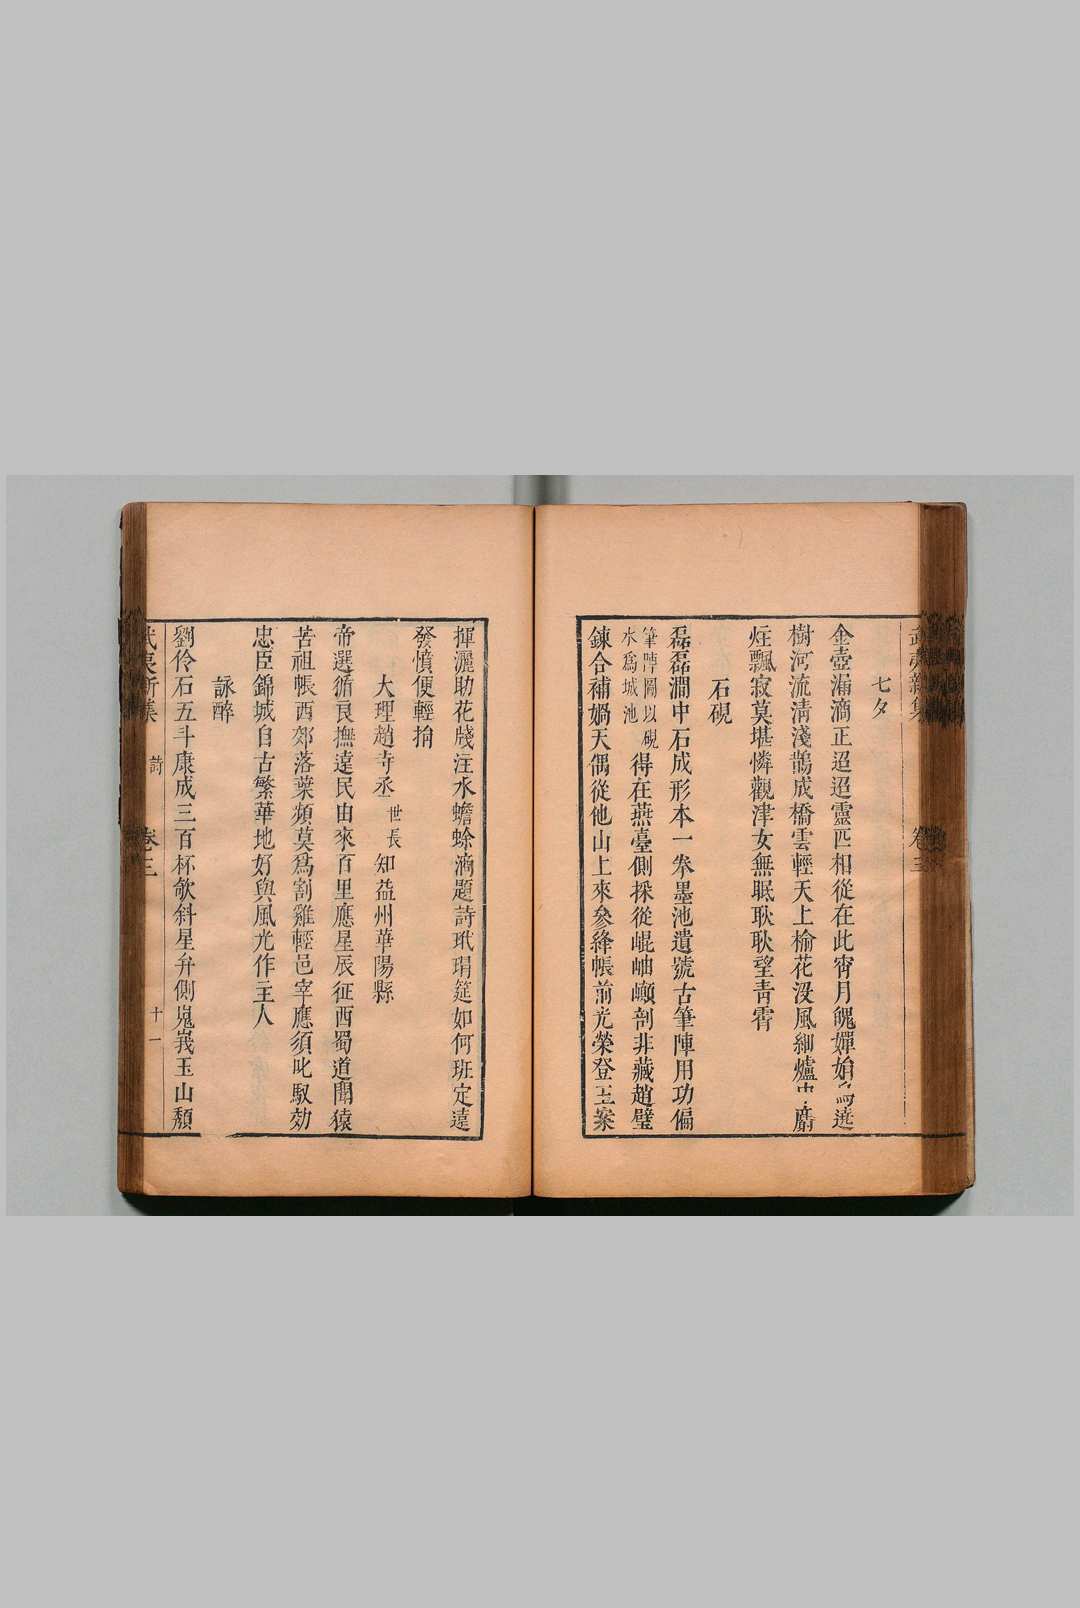 武夷新集 卷三
七夕
金壺漏滴正迢迢靈匹相從在此宵月魄嬋娟烏遶
樹河流清淺鵲成橋雲輕天上榆花沒風細爐中麝
炷飄寂莫堪憐觀津女無眠耿耿望青霄
石硯
磊磊澗中石成形本一拳墨池遺號古筆陣用功偏
筆陣圖以硯水爲城池 得在燕臺側採從崐岫巓剖非藏趙璧
鍊合補媧天偶從他山上來參絳帳前光榮登玉案
揮灑助花牋注水蟾蜍滴題詩玳瑁筵如何班定遠
發憤便輕捐
大理趙寺丞世長知益州華陽縣
帝選循良撫遠民由來百里應星辰征西蜀道聞猿
苦祖帳西郊落葉頻莫爲割雞輕邑宰應須叱馭効
忠臣錦城自古繁華地好與風光作主人
詠醉
劉伶石五斗康成三百杯欹斜星弁側嵬峩玉山頽
武夷新集 詩 卷三 十一